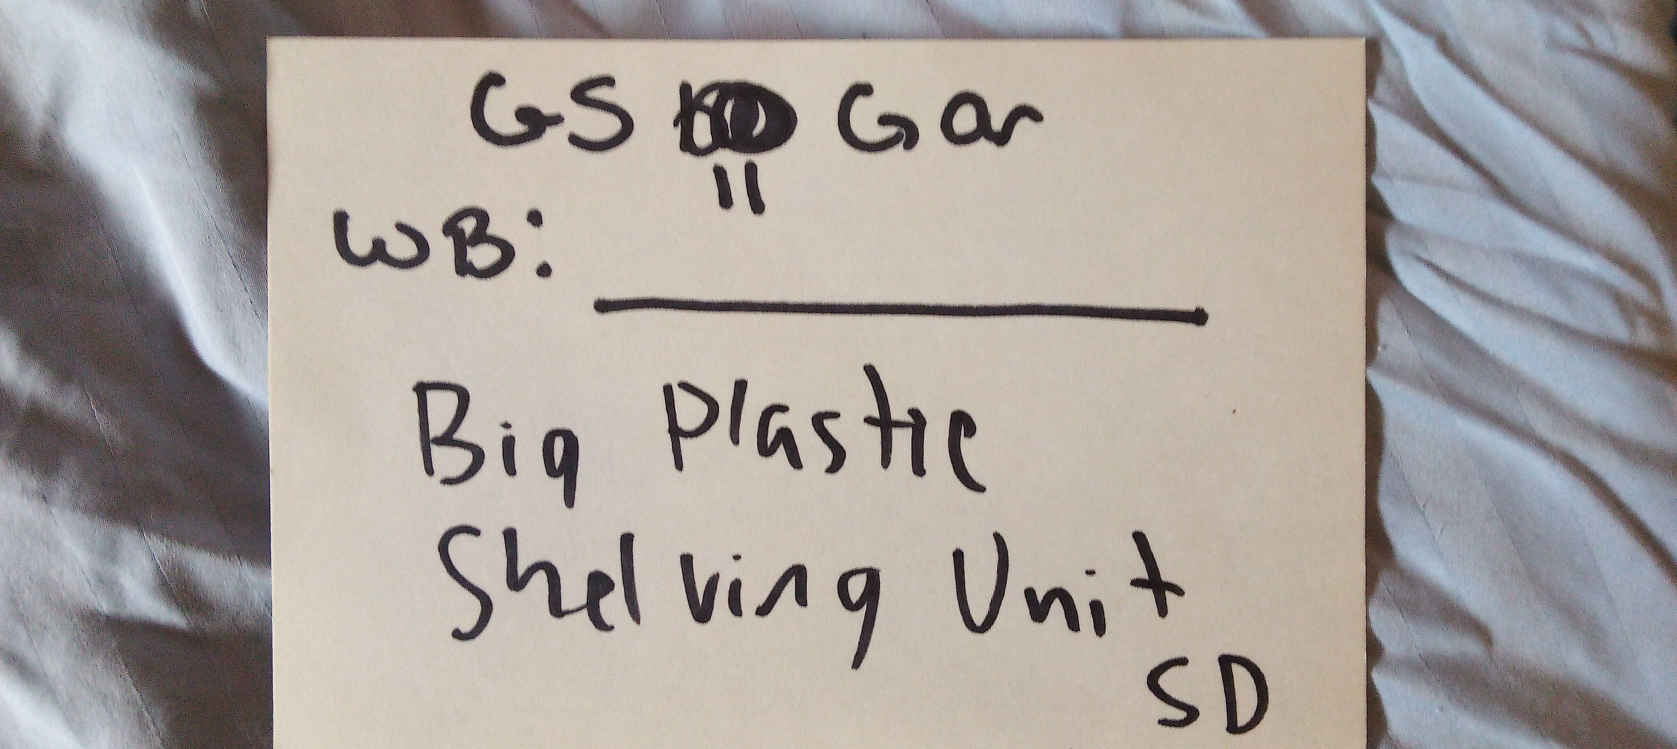 GS Gar
11
WB:
Big Plastic
Shelving Unit
SD